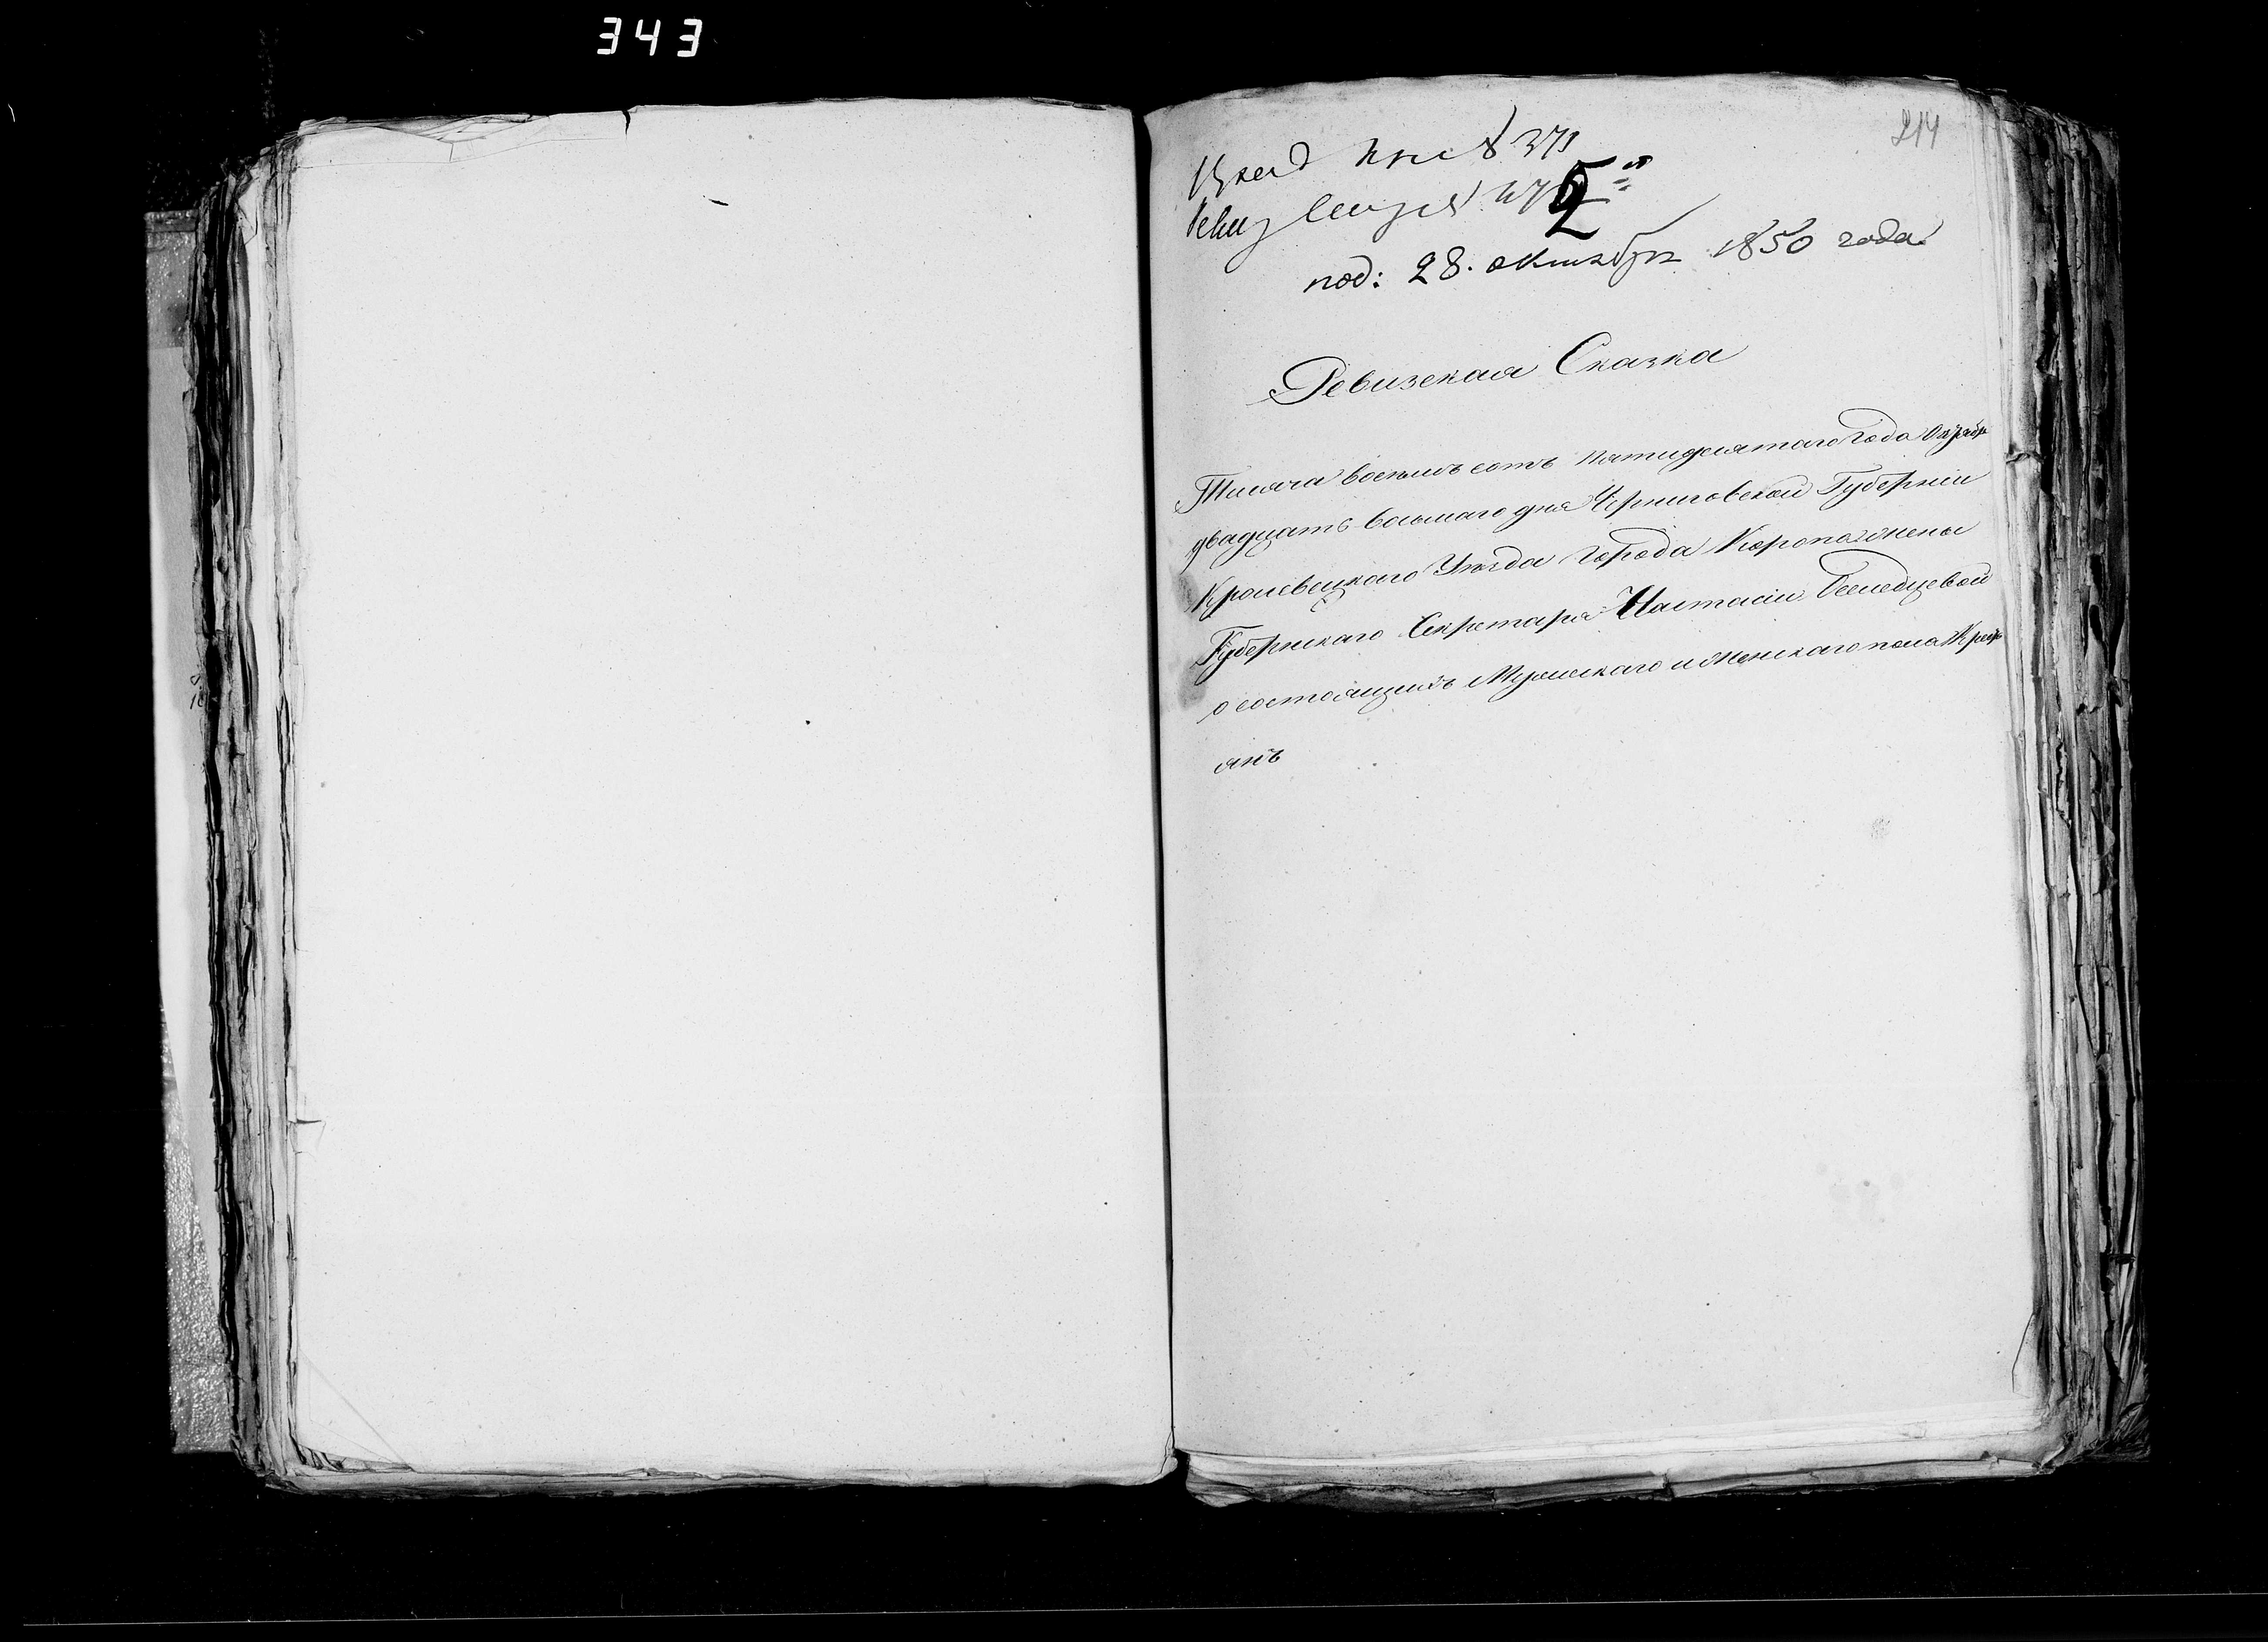 343
214
371
под: 28. октября 1850 года
Ревизская Сказка
Тысяча восемь сотъ пятидесятаго Года Октября
двадцать восьмаго дня Черниговской Губерніи
Кролевецкаго Уѣзда Города Коропа жены
Губернскаго Секретаря Настасіи
о состоящихъ Мужескаго и Женскаго пола Крестъ
янъ